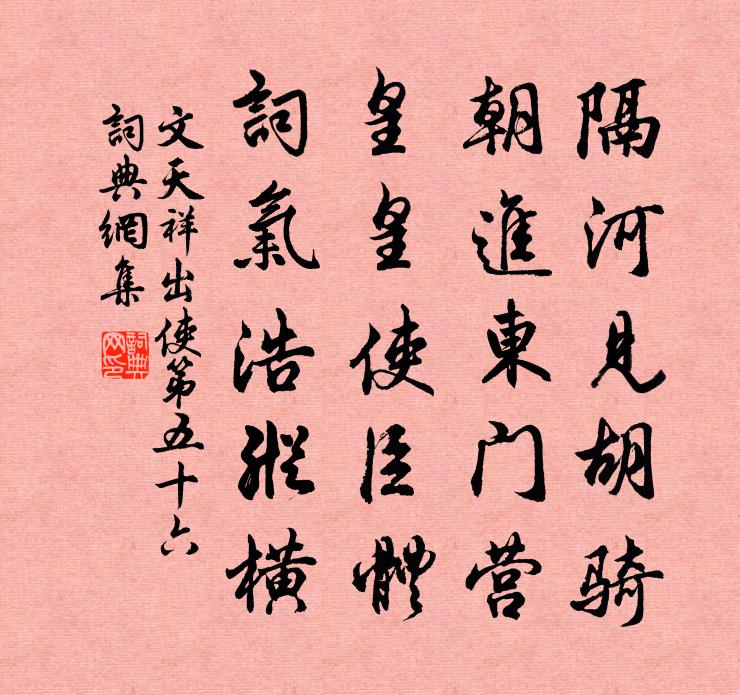 隔河見胡騎
朝進東門营
皇皇使臣體
詞氣浩縱橫
文天祥出使第五十六
詞典網集
詞典網印